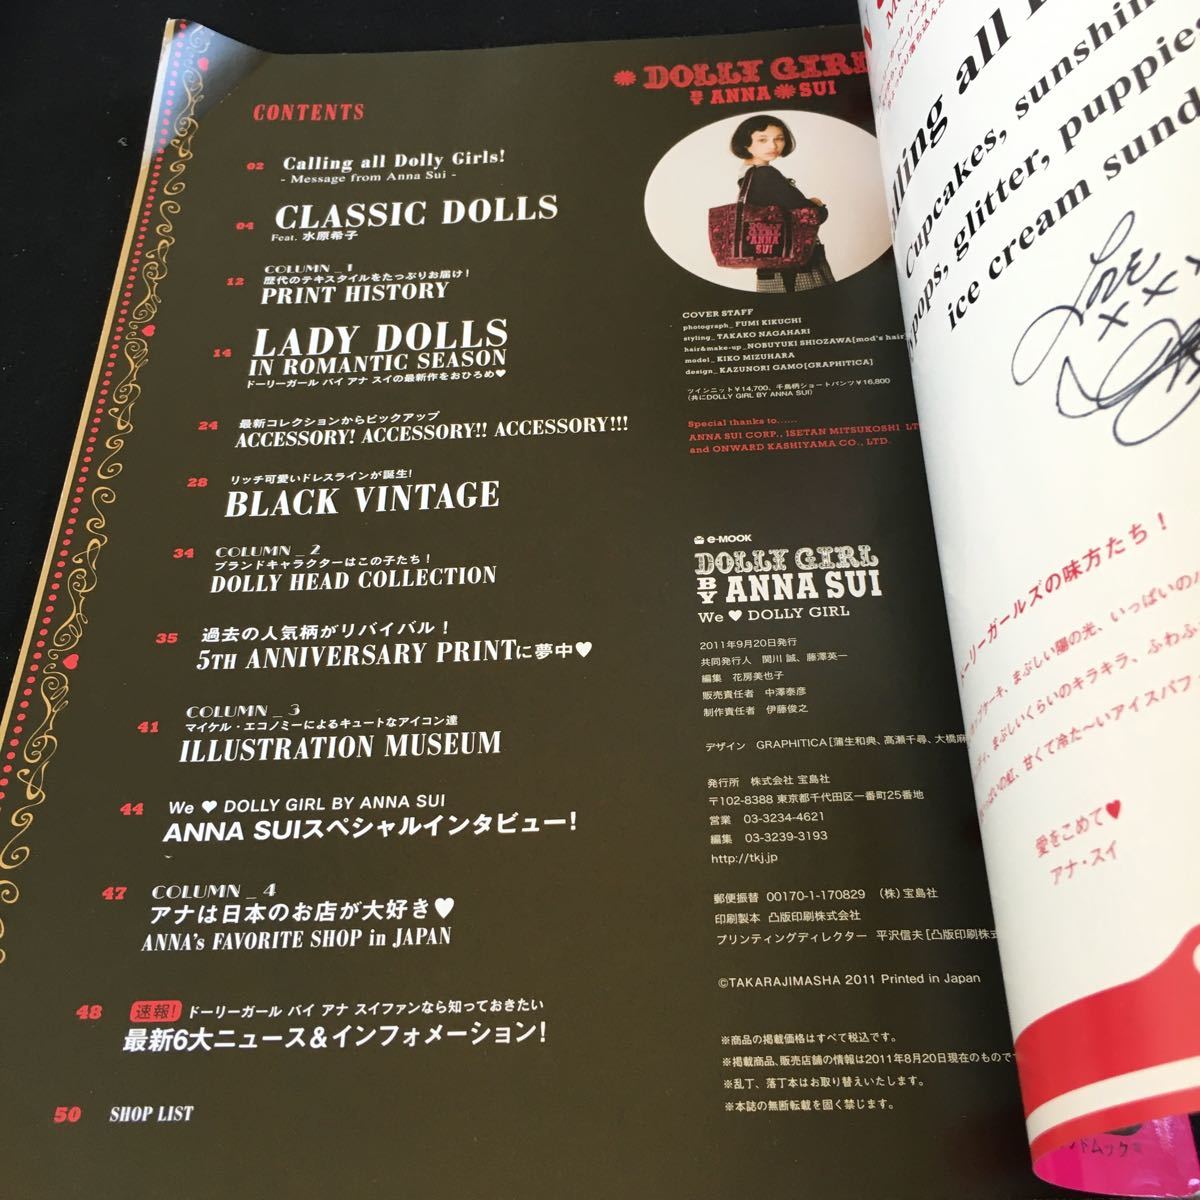 CONTENTS
02 Calling all Dolly Girls!
- Message from Anna Sui -
04 CLASSIC DOLLS
Feat. 水原希子
COLUMN_1
12 歴代のテキスタイルをたっぷりお届け!
PRINT HISTORY
14 LADY DOLLS
IN ROMANTIC SEASON
ドーリーガール バイ アナ スイの最新作をおひろめ♥
24 最新コレクションからピックアップ
ACCESSORY! ACCESSORY!! ACCESSORY!!!
28 リッチ可愛いドレスラインが誕生!
BLACK VINTAGE
34 COLUMN_2
ブランドキャラクターはこの子たち!
DOLLY HEAD COLLECTION
35 過去の人気柄がリバイバル!
5TH ANNIVERSARY PRINTに夢中♥
COLUMN_3
41 マイケル・エコノミーによるキュートなアイコン達
ILLUSTRATION MUSEUM
44 We ♥ DOLLY GIRL BY ANNA SUI
ANNA SUIスペシャルインタビュー!
47 COLUMN_4
アナは日本のお店が大好き♥
ANNA's FAVORITE SHOP in JAPAN
48 速報! ドーリーガール バイ アナ スイファンなら知っておきたい
最新6大ニュース&インフォメーション!
50 SHOP LIST
DOLLY GIRL
BY ANNA SUI
COVER STAFF
photograph_ FUMI KIKUCHI
styling_ TAKAKO NAGAHARI
hair&make-up_ NOBUYUKI SHIOZAWA[mod's hair]
model_ KIKO MIZUHARA
design_ KAZUNORI GAMO[GRAPHITICA]
ツインニット¥14,700、千鳥柄ショートパンツ¥16,800
(共にDOLLY GIRL BY ANNA SUI)
Special thanks to......
ANNA SUI CORP., ISETAN MITSUKOSHI LT
and ONWARD KASHIYAMA CO., LTD.
e-MOOK
DOLLY GIRL
BY ANNA SUI
We ♥ DOLLY GIRL
2011年9月20日発行
共同発行人 関川 誠、藤澤英一
編集 花房美也子
販売責任者 中澤泰彦
制作責任者 伊藤俊之
デザイン GRAPHITICA[蒲生和典、高瀬千尋、大橋麻
発行所 株式会社 宝島社
〒102-8388 東京都千代田区一番町25番地
営業 03-3234-4621
編集 03-3239-3193
http://tkj.jp
郵便振替 00170-1-170829 (株)宝島社
印刷製本 凸版印刷株式会社
プリンティングディレクター 平沢信夫[凸版印刷株式
©TAKARAJIMASHA 2011 Printed in Japan
※商品の掲載価格はすべて税込です。
※掲載商品、販売店舗の情報は2011年8月20日現在のものです
※乱丁、落丁本はお取り替えいたします。
※本誌の無断転載を固く禁じます。
lling all
Cupcakes, sunshin
pops, glitter, puppies
ice cream sund
Love
xxx
ドーリーガールズの味方たち!
カップケーキ、まぶしい陽の光、いっぱいの
まぶしいくらいのキラキラ、ふわふ
いっぱいの虹、甘くて冷た〜いアイスパフ
愛をこめて♥
アナ・スイ
ンドムック